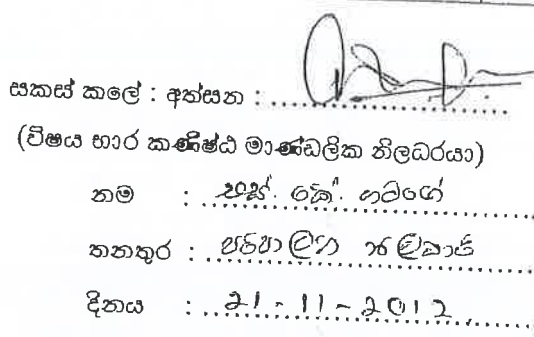 සකස් කලේ : අත්සන : ....................
(විෂය භාර කණිෂ්ඨ මාණ්ඩලික නිලධරයා)
නම : එස්. කේ. ගමගේ
තනතුර : පරිපාලන සහකාර
දිනය : 21-11-2012